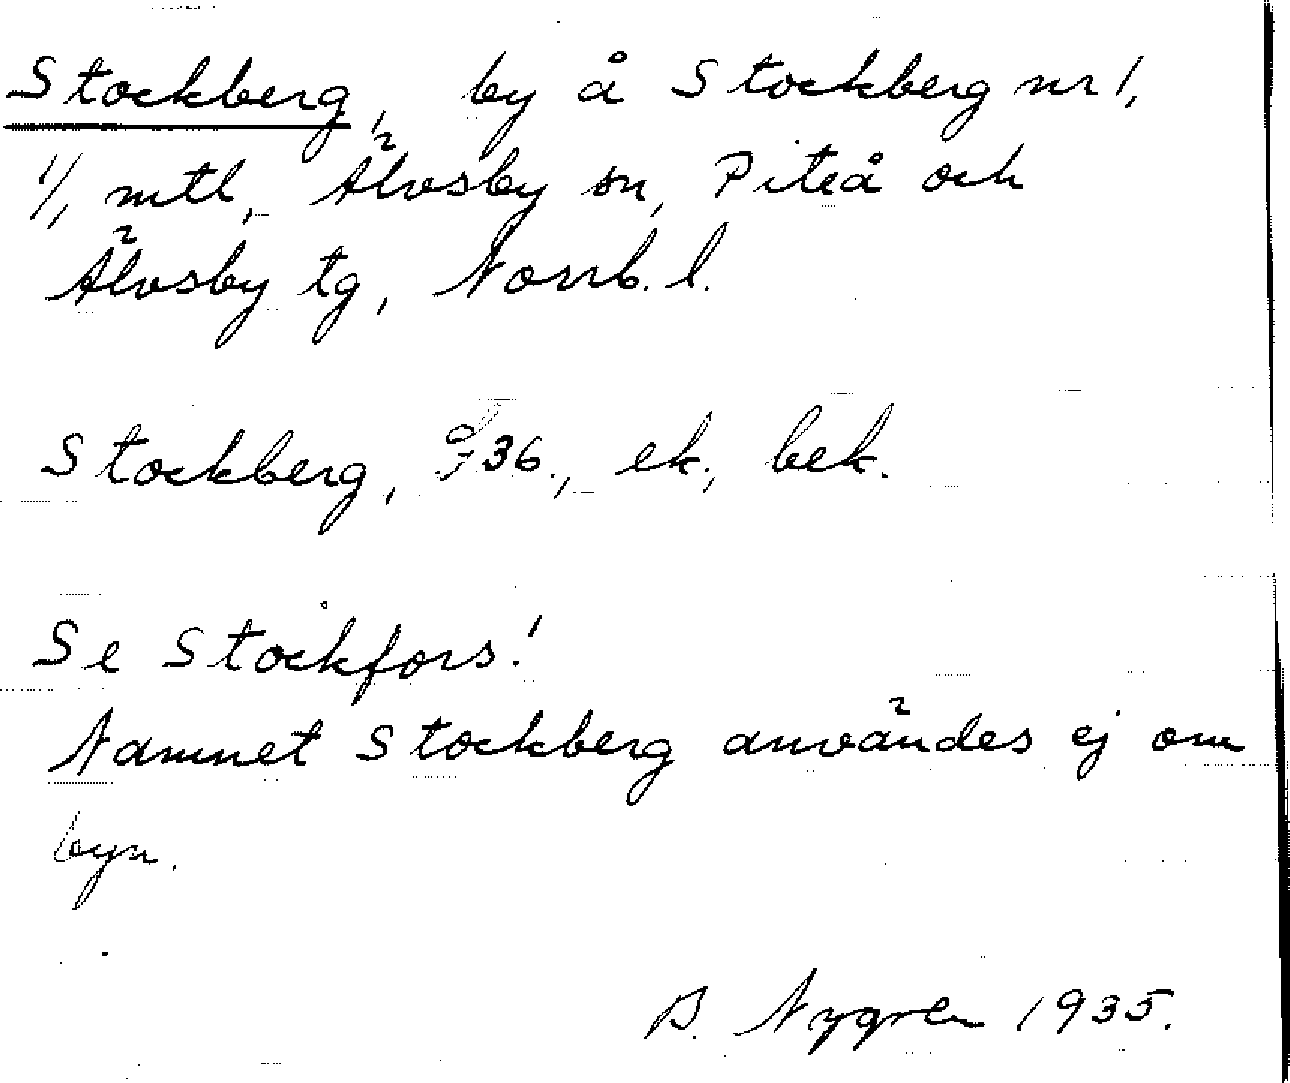 Stockberg, by å Stockberg nr 1,
1/1 mtl, Älvsby sn, Piteå och
Älvsby tg, Norrb. l.
Stockberg, 36., ek., bek.
Se Stockfors!
Namnet Stockberg användes ej om
byn.
B. Nygren 1935.